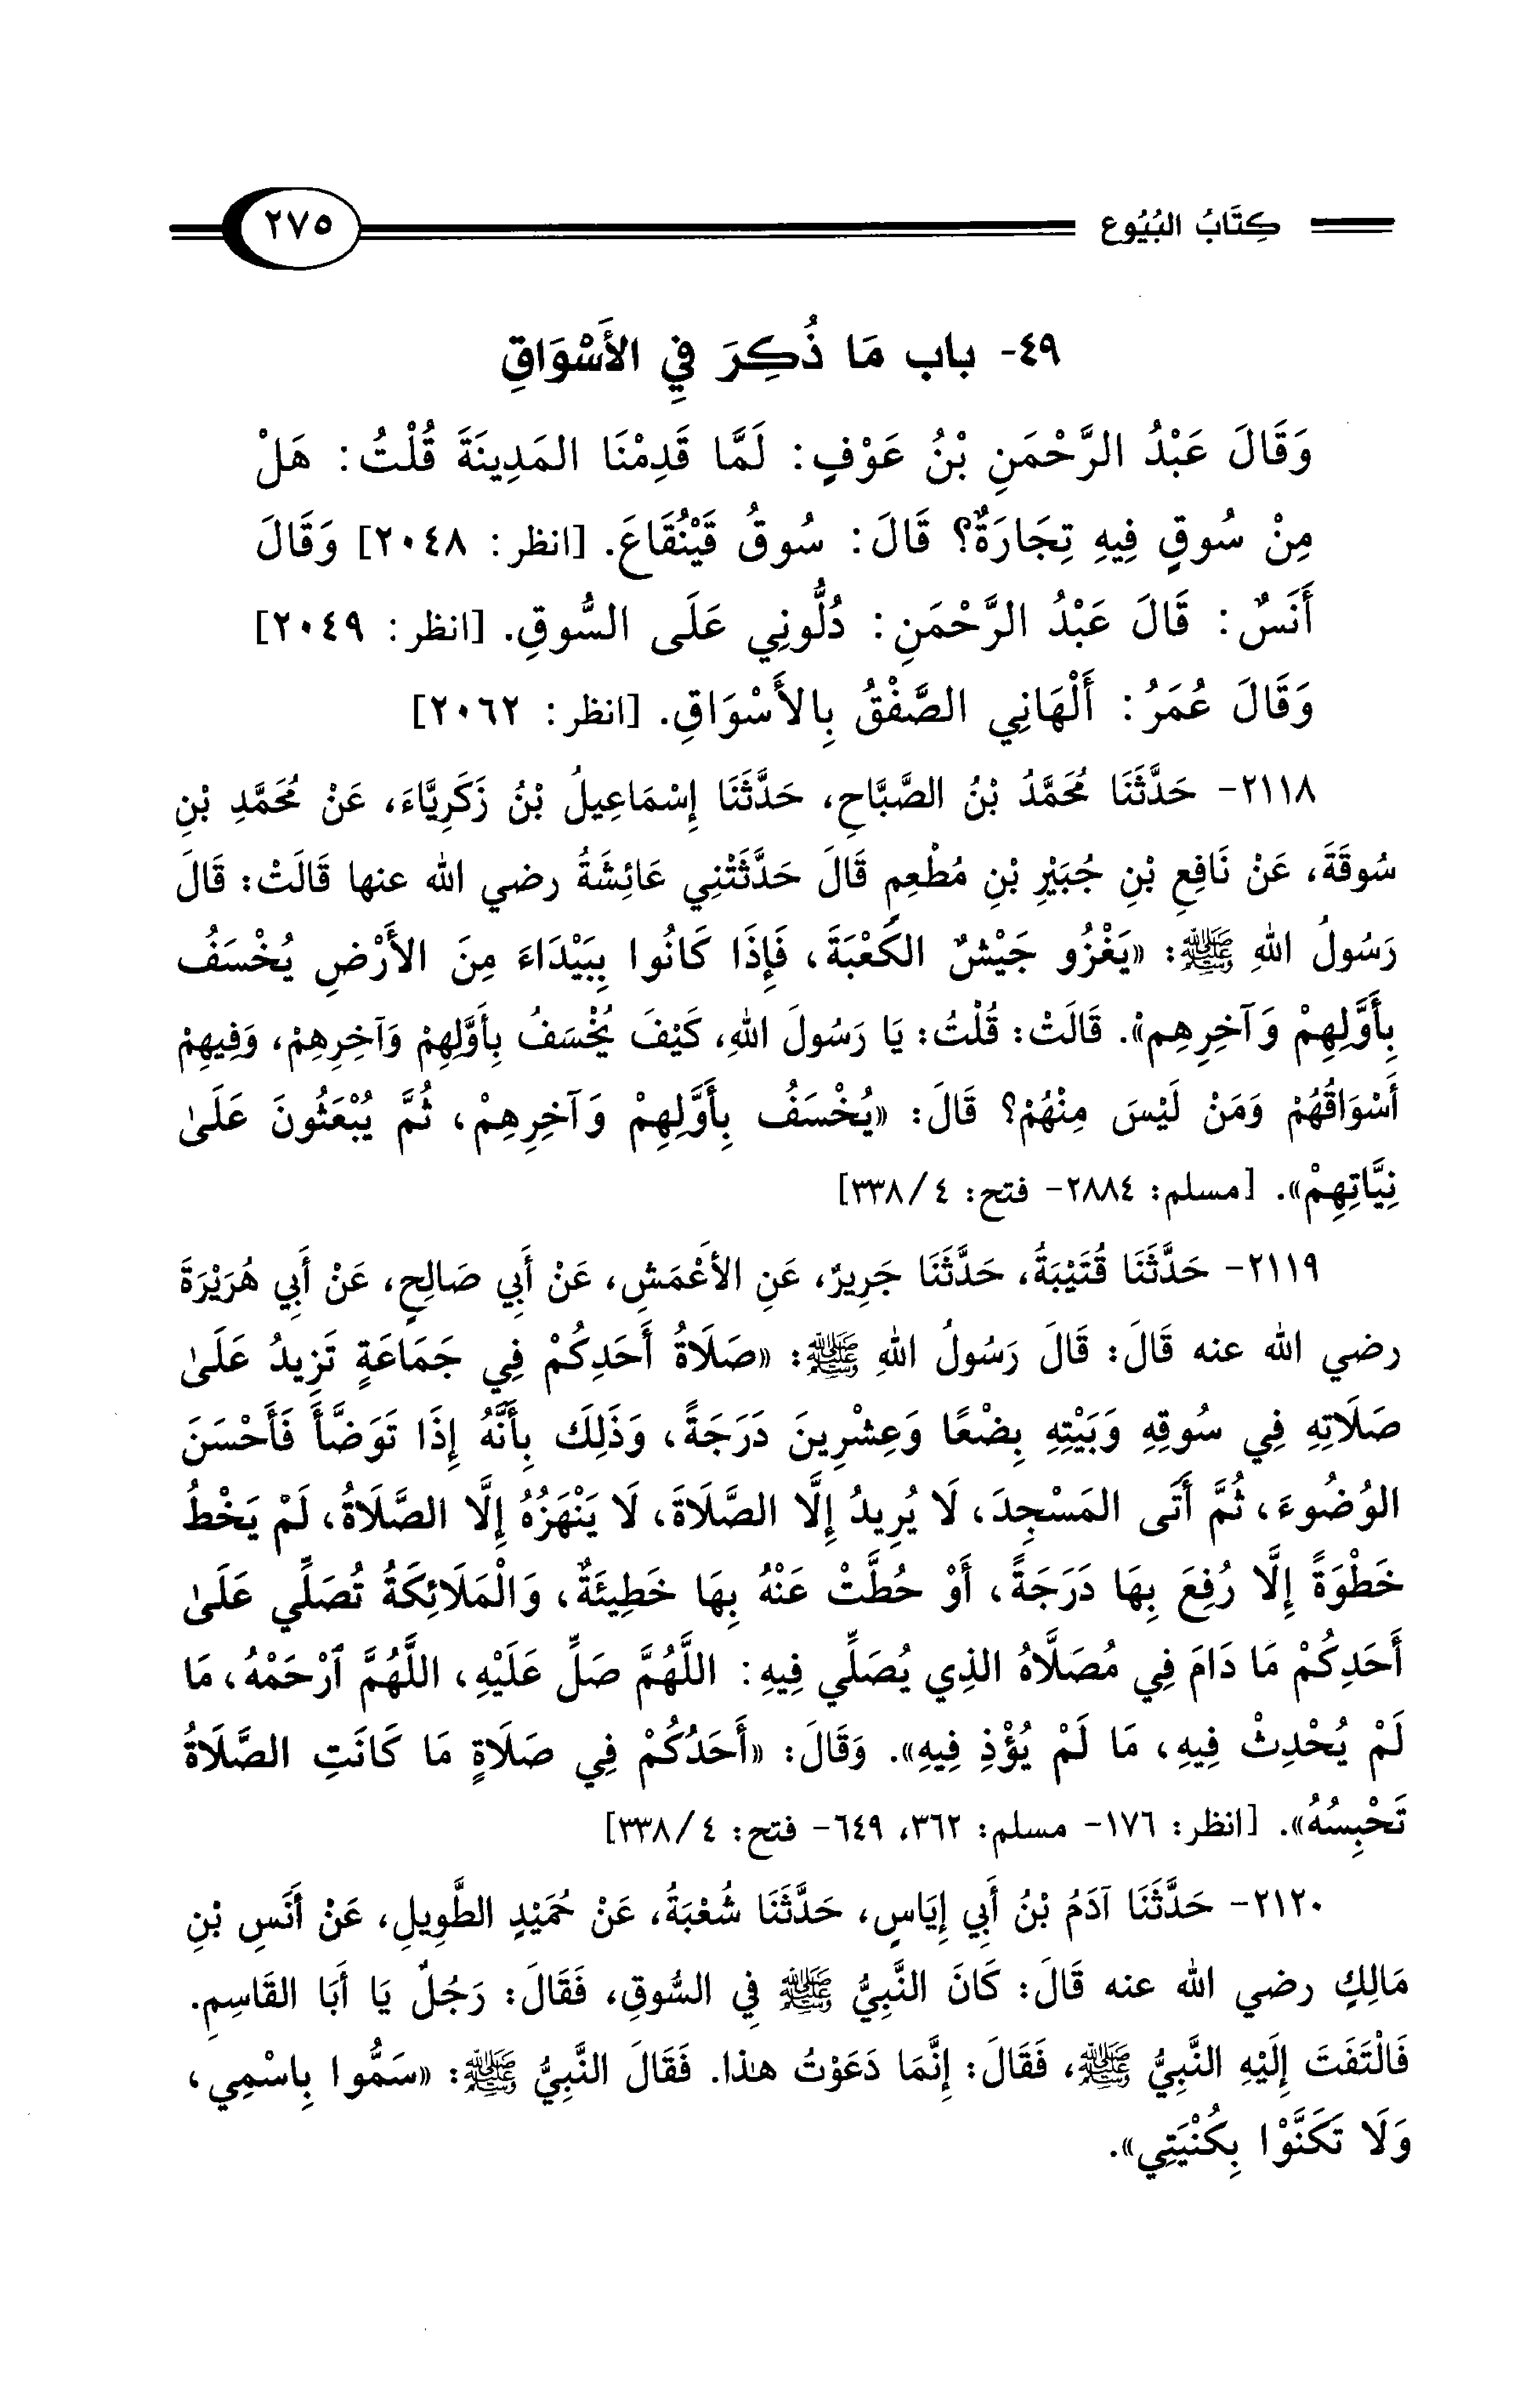 كِتَابُ البُيُوع ٢٧٥
٤٩- باب مَا ذُكِرَ فِي الأَسْوَاقِ
وَقَالَ عَبْدُ الرَّحْمَنِ بْنُ عَوْفٍ: لَمَّا قَدِمْنَا المَدِينَةَ قُلْتُ: هَلْ
مِنْ سُوقٍ فِيهِ تِجَارَةٌ؟ قَالَ: سُوقُ قَيْنُقَاعَ. [انظر: ٢٠٤٨] وَقَالَ
أَنَسٌ: قَالَ عَبْدُ الرَّحْمَنِ: دُلُّونِي عَلَى السُّوقِ. [انظر: ٢٠٤٩]
وَقَالَ عُمَرُ: أَلْهَانِي الصَّفْقُ بِالأَسْوَاقِ. [انظر: ٢٠٦٢]
٢١١٨- حَدَّثَنَا مُحَمَّدُ بْنُ الصَّبَّاحِ، حَدَّثَنَا إِسْمَاعِيلُ بْنُ زَكَرِيَّاءَ، عَنْ مُحَمَّدِ بْنِ
سُوقَةَ، عَنْ نَافِعِ بْنِ جُبَيْرِ بْنِ مُطْعِمٍ قَالَ حَدَّثَتْنِي عَائِشَةُ رضي الله عنها قَالَتْ: قَالَ
رَسُولُ اللهِ ﷺ: «يَغْزُو جَيْشٌ الكَعْبَةَ، فَإِذَا كَانُوا بِبَيْدَاءَ مِنَ الأَرْضِ يُخْسَفُ
بِأَوَّلِهِمْ وَآخِرِهِم». قَالَتْ: قُلْتُ: يَا رَسُولَ اللهِ، كَيْفَ يُخْسَفُ بِأَوَّلِهِمْ وَآخِرِهِمْ، وَفِيهِمْ
أَسْوَاقُهُمْ وَمَنْ لَيْسَ مِنْهُمْ؟ قَالَ: «يُخْسَفُ بِأَوَّلِهِمْ وَآخِرِهِمْ، ثُمَّ يُبْعَثُونَ عَلَىٰ
نِيَّاتِهِمْ». [مسلم: ٢٨٨٤- فتح: ٤/ ٣٣٨]
٢١١٩- حَدَّثَنَا قُتَيْبَةُ، حَدَّثَنَا جَرِيرٌ، عَنِ الأَعْمَشِ، عَنْ أَبِي صَالِحٍ، عَنْ أَبِي هُرَيْرَةَ
رضي الله عنه قَالَ: قَالَ رَسُولُ اللهِ ﷺ: «صَلَاةُ أَحَدِكُمْ فِي جَمَاعَةٍ تَزِيدُ عَلَىٰ
صَلَاتِهِ فِي سُوقِهِ وَبَيْتِهِ بِضْعًا وَعِشْرِينَ دَرَجَةً، وَذَلِكَ بِأَنَّهُ إِذَا تَوَضَّأَ فَأَحْسَنَ
الوُضُوءَ، ثُمَّ أَتَى المَسْجِدَ، لَا يُرِيدُ إِلَّا الصَّلَاةَ، لَا يَنْهَزُهُ إِلَّا الصَّلَاةُ، لَمْ يَخْطُ
خَطْوَةً إِلَّا رُفِعَ بِهَا دَرَجَةً، أَوْ حُطَّتْ عَنْهُ بِهَا خَطِيئَةٌ، وَالْمَلَائِكَةُ تُصَلِّي عَلَىٰ
أَحَدِكُمْ مَا دَامَ فِي مُصَلَّاهُ الذِي يُصَلِّي فِيهِ: اللَّهُمَّ صَلِّ عَلَيْهِ، اللَّهُمَّ ٱرْحَمْهُ، مَا
لَمْ يُحْدِثْ فِيهِ، مَا لَمْ يُؤْذِ فِيهِ». وَقَالَ: «أَحَدُكُمْ فِي صَلَاةٍ مَا كَانَتِ الصَّلَاةُ
تَحْبِسُهُ». [انظر: ١٧٦- مسلم: ٣٦٢، ٦٤٩- فتح: ٤/ ٣٣٨]
٢١٢٠- حَدَّثَنَا آدَمُ بْنُ أَبِي إِيَاسٍ، حَدَّثَنَا شُعْبَةُ، عَنْ حُمَيْدٍ الطَّوِيلِ، عَنْ أَنَسِ بْنِ
مَالِكٍ رضي الله عنه قَالَ: كَانَ النَّبِيُّ ﷺ فِي السُّوقِ، فَقَالَ: رَجُلٌ يَا أَبَا القَاسِمِ.
فَالْتَفَتَ إِلَيْهِ النَّبِيُّ ﷺ، فَقَالَ: إِنَّمَا دَعَوْتُ هٰذا. فَقَالَ النَّبِيُّ ﷺ: «سَمُّوا بِاسْمِي،
وَلَا تَكَنَّوْا بِكُنْيَتِي».